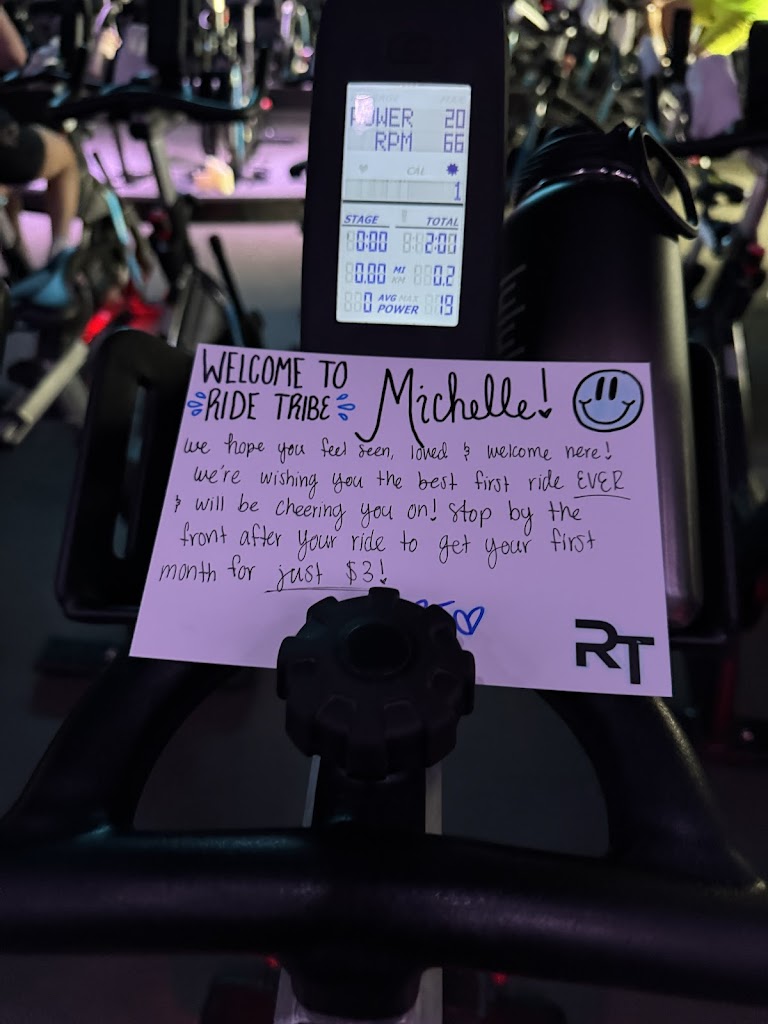 POWER 20
RPM 66
CAL
1
STAGE TOTAL
0:00 2:00
0.00 MI 0.2
KM
0 AVG MAX 19
POWER
WELCOME TO
RIDE TRIBE
Michelle!
We hope you feel seen, loved & welcome here!
We're wishing you the best first ride EVER
& will be cheering you on! Stop by the
front after your ride to get your first
month for just $3!
RT